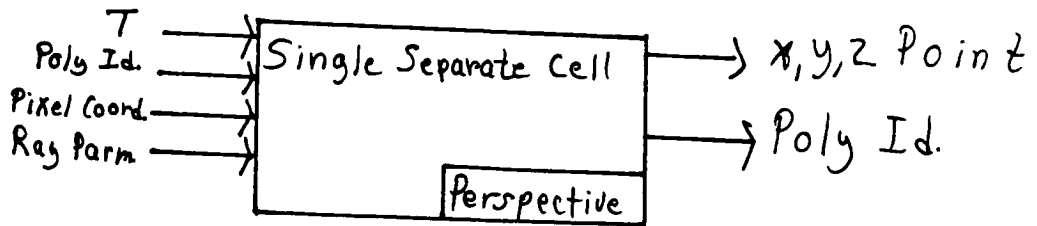 T
Poly Id.
Pixel Coord.
Ray Parm
Single Separate Cell
Perspective
x,y,z Point
Poly Id.